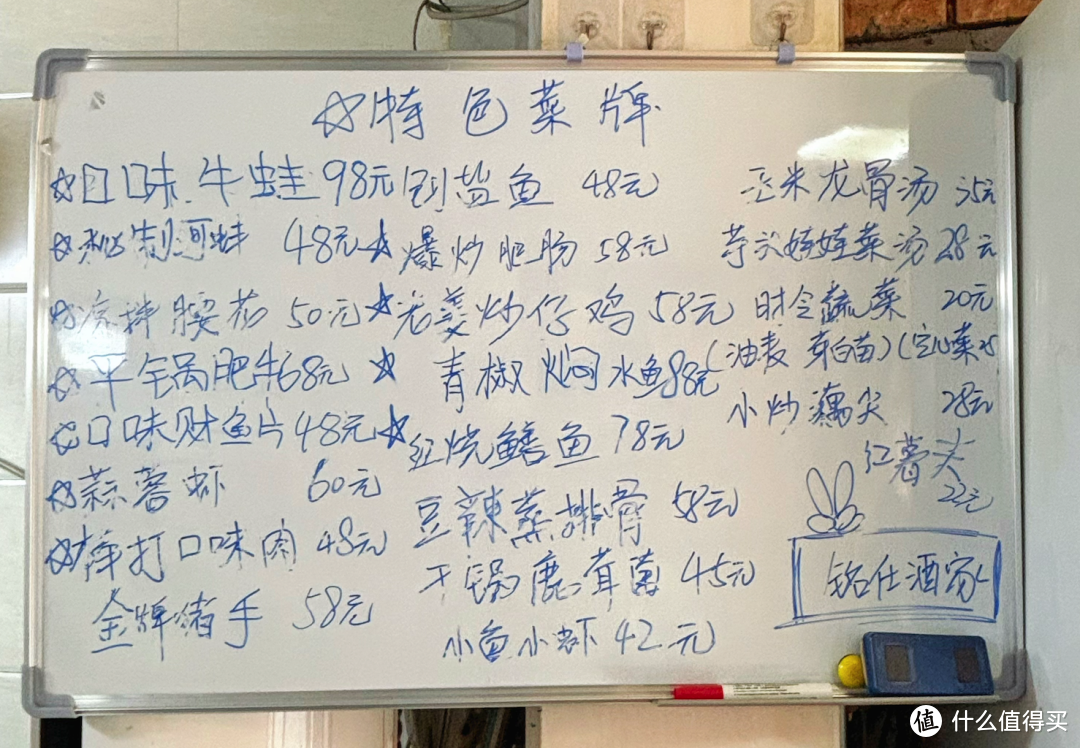 ☆特色菜牌
☆口味牛蛙 98元
☆秘制河蚌 48元
☆凉拌腰花 50元
☆干锅肥牛 68元
☆口味财鱼片 48元
☆蒜蓉虾 60元
☆擇打口味肉 48元
金牌猪手 58元
剁盐鱼 48元
★爆炒肥肠 58元
★老姜炒仔鸡 58元
★青椒焖水鱼 88元
★红烧鳝鱼 78元
豆辣蒸排骨 58元
干锅鹿茸菌 45元
小鱼小虾 42元
玉米龙骨汤 35元
芋头娃娃菜汤 28元
时令蔬菜 20元
(油麦 茼白苗)(空心菜25
小炒藕尖 28元
红薯头
22元
铭仕酒家
值 什么值得买